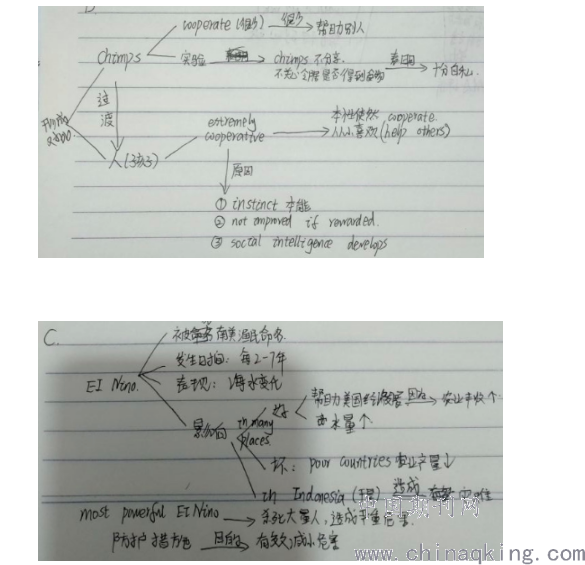 cooperate
帮助别人
Chimps
实验
chimps 不分享
不关心同伴是否得到食物
表明
十分自私
过渡
人(孩子)
extremely
cooperative
本性使然 cooperate
从小喜欢(help others)
原因
① instinct 本能
② not improved if rewarded.
③ social intelligence develops
C.
被南美渔民命名
EI Nino.
发生时间: 每2-7年
表现: 海水变化
影响
in many
places
好
帮助美国经济
因为
农业丰收个
雨水量个
坏: poor countries 农业产量↓
in Indonesia
造成
灾难
most powerful EI Nino
杀死大量人,造成严重危害.
防护措施
目的
有效减小危害
中国期刊网
www.chinaqking.com